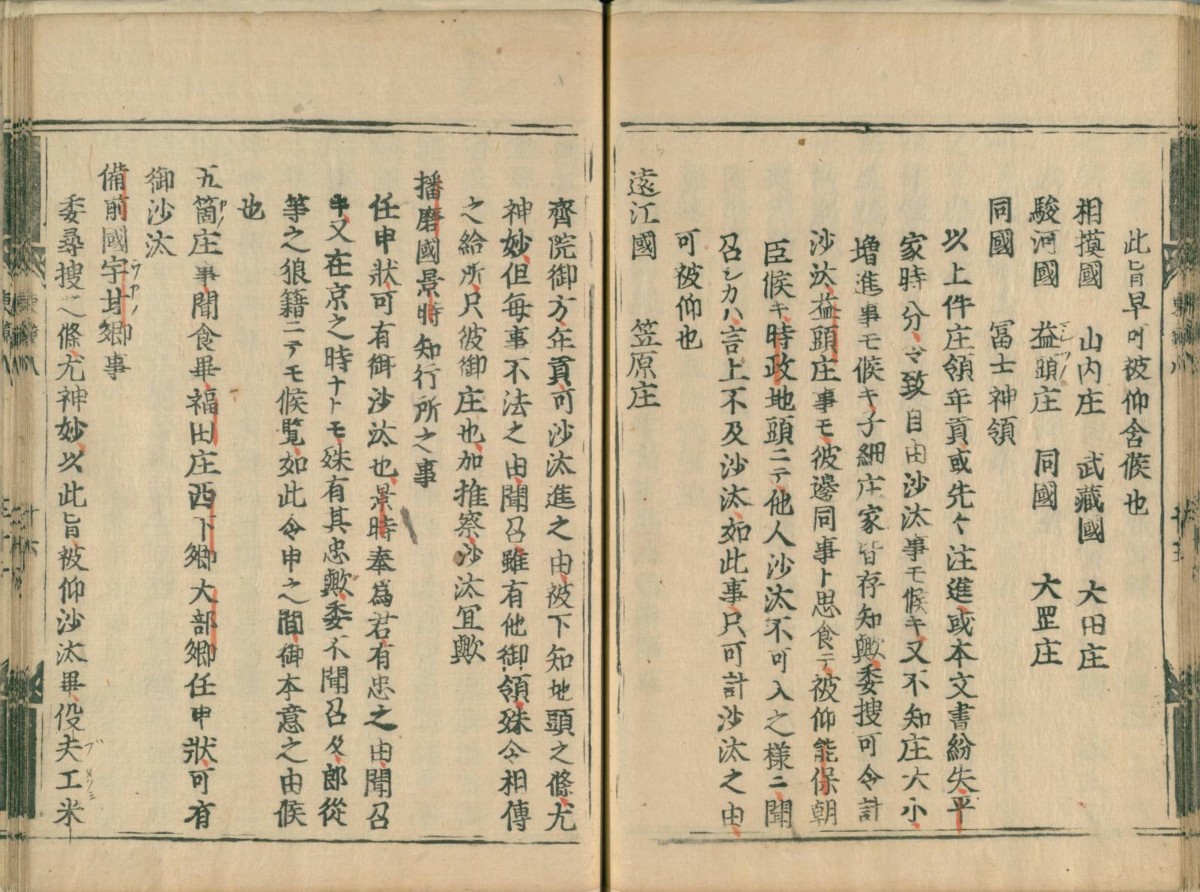 此旨早可被仰舍候也
相摸國　山内庄　武藏國　大田庄
駿河國　益頭庄　同國　大罡庄
同國　冨士神領
以上件庄領年貢、或先々注進、或本文書紛失、平
家時分、令致自由沙汰事モ候キ、又不知庄大小、
増進事モ候キ、子細庄家皆存知歟、委搜可令計
沙汰、益頭庄事モ、彼邊同事ト思食テ、被仰能保朝
臣候キ、時政地頭ニテ、他人沙汰不可入之様ニ聞
召シカハ、言上不及沙汰、如此事、只可計沙汰之由、
可被仰也
遠江國　笠原庄
齊院御方、年貢可沙汰進之由、被下知地頭之條、尤
神妙、但毎事不法之由、聞召、雖有他御領、殊令相傳
之給所、只彼御庄也、加推察、沙汰冝歟
播磨國景時知行所之事
任申狀、可有御沙汰也、景時奉爲君、有忠之由、聞召
キ、又在京之時ナトモ、殊有其忠歟、委不聞召、々郎從
等之狼籍ニテモ候覧、如此令申之間、御本意之由候
也
五箇庄事、聞食畢、福田庄西下郷大部郷任申狀、可有
御沙汰
備前國宇甘郷事
委尋搜之條、尤神妙、以此旨、被仰沙汰畢、役夫工米